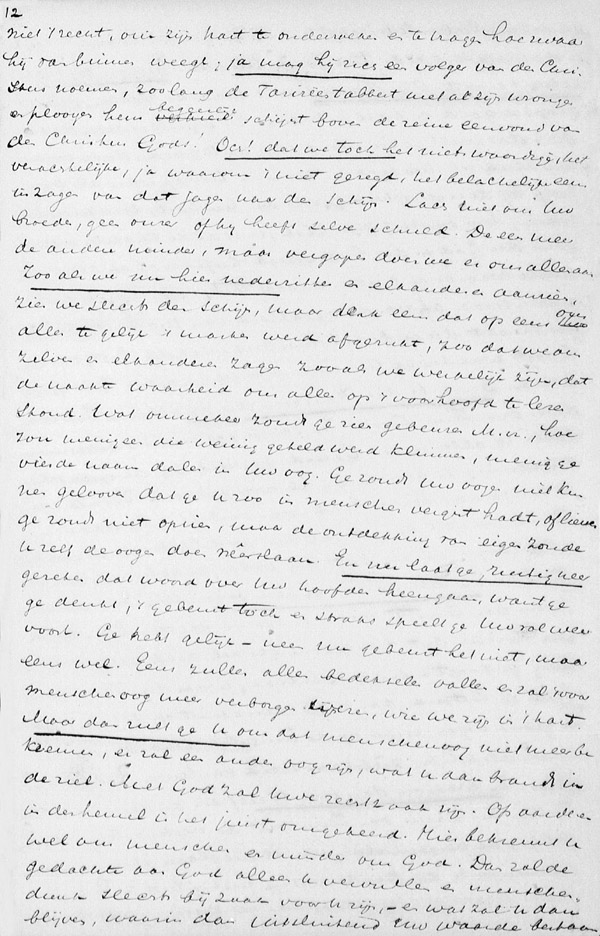 12
niet 't recht, om zijn hart te onderzoeken en te vragen hoe zwaar
hij van binnen weegt; ja mag hij zich een volger van den Chri-
stus noemen, zoolang de Farizeestabbert met al zijn wrongen
en plooyen hem begeerig schijnt boven de reine eenvoud van
den Christus Gods! Och! dat we toch het nietswaardige, het
verachtelijke, ja waarom 't niet gezegd, het belachelijke een
inzagen van dat jagen naar den schijn. Laas niet om Uw
broeder, geen onzer of hij heeft zelve schuld. De een meer
de ander minder, maar vergapen doen we er ons allen aan
Zoo als we nu hier nederzitten en elkanderen aanzien,
zien we slechts den schijn, maar denk eens dat op eens ons
allen te gelijk 't masker werd afgerukt, zoo dat we ons
zelven en elkanderen zagen zooals we werkelijk zijn, dat
de naakte waarheid ons allen op 't voorhoofd te lezen
stond. Wat ommekeer zoudt ge zien gebeuren M. v., hoe
zou menigeen die weinig geteld werd klimmen, menig ge
vierde naam dalen in Uw oog. Ge zoudt Uw oogen niet kun
nen gelooven dat ge U zoo in menschen vergist hadt, of liever
ge zoudt niet opzien, maar de ontdekking van eigen zonde
U zelf de oogen doen neêrslaan. En nu laat ge, rustig neer
gezeten dat woord over Uw hoofden heengaan, want ge
ge denkt, 't gebeurt toch en straks speelt ge Uw rol weer
voort. Ge hebt gelijk – neen nu gebeurt het niet, maar
eens wel. Eens zullen alle bedeksels vallen en zal voor
menschenoog meer verborgen zijn, wie we zijn in 't hart.
Maar dan zult ge U om dat menschenoog niet meer be
kreunen, er zal een ander oog zijn, wat U dan brandt in
de ziel. Met God zal Uwe rechtzaak zijn. Op aarde en
in den hemel is het juist omgekeerd. Hier bekreunt U
wel om menschen en minder om God. Dan zal de
gedachte aan God alleen U vervullen en menschen-
dunk slechts bijzaak voor U zijn, – en wat zal U dan
blijven, waarin dan uitsluitend Uw waarde bestaan